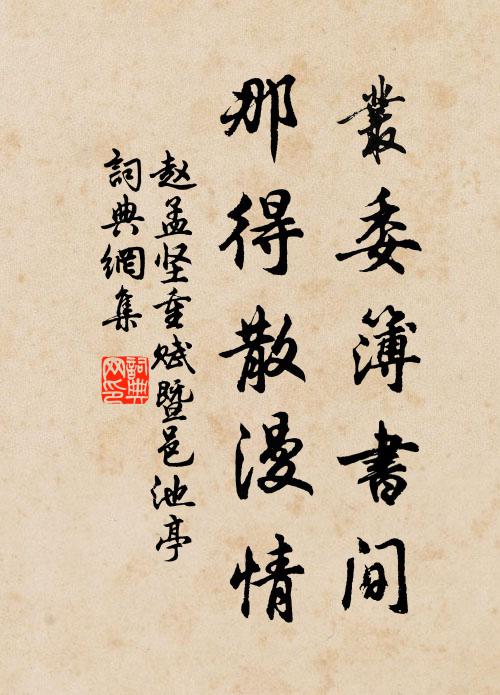 叢委簿書间
那得散漫情
赵孟坚重赋暨邑池亭
詞典網集
詞典网印